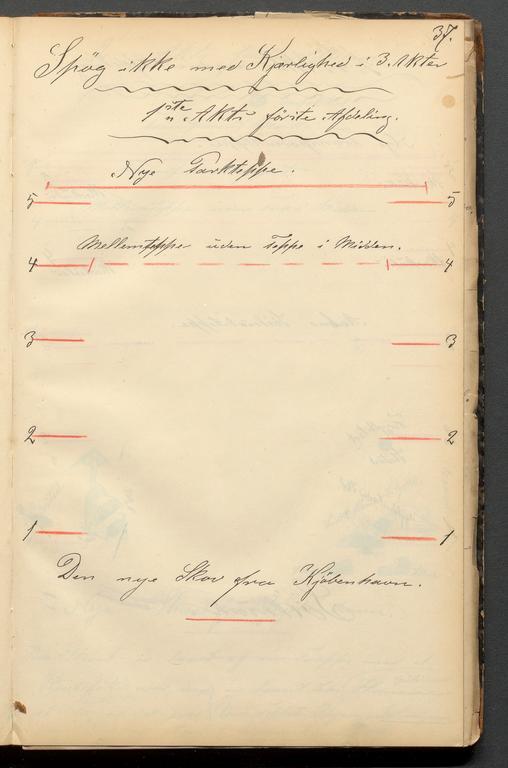 37.
Spög ikke med Kjærlighed i 3. Akter
1ste Akts förste Afdeling.
Nye Parkteppe.
5 5
Mellemtepper uden Teppe i Midden.
4 4
3 3
2 2
1 1
Den nye Skov fra Kjöbenhavn.